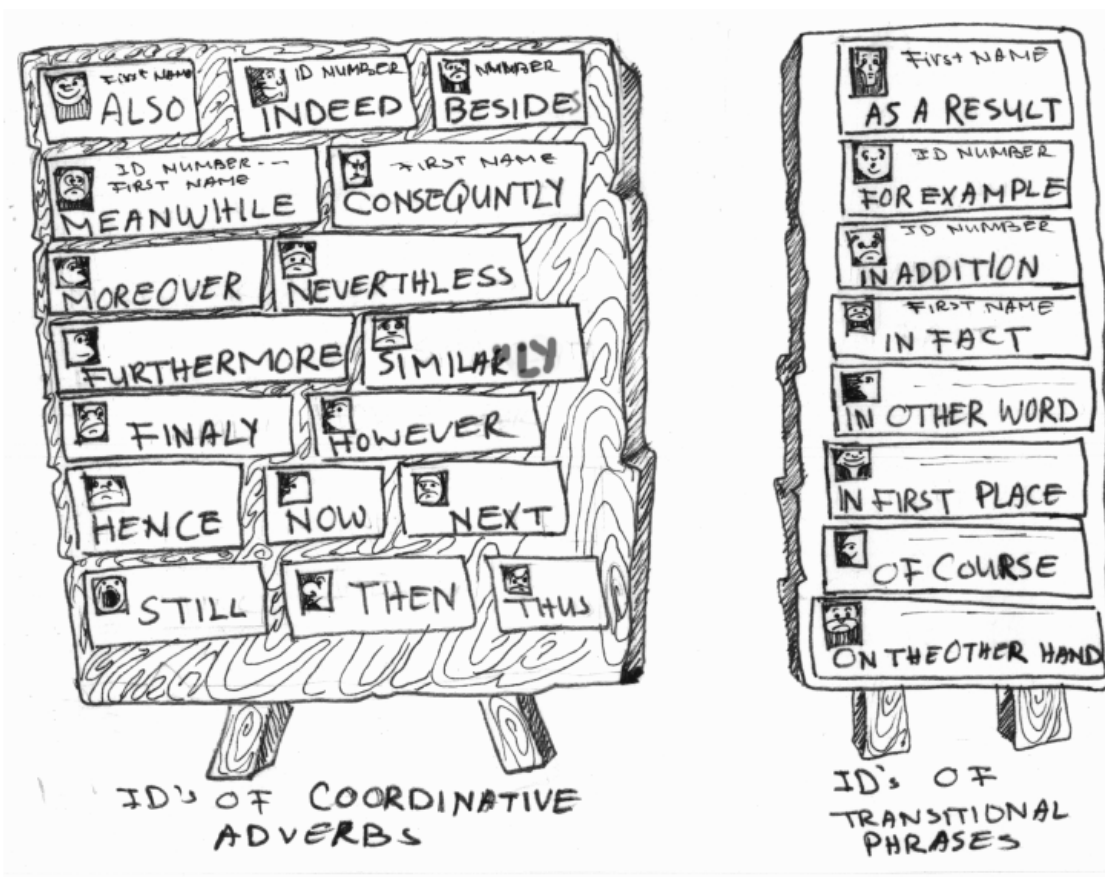 First NAME
ALSO
ID NUMBER
INDEED
NUMBER
BESIDES
ID NUMBER ---
FIRST NAME
MEANWHILE
FIRST NAME
CONSEQUNTLY
MOREOVER
NEVERTHLESS
FURTHERMORE
SIMILARLY
FINALY
HOWEVER
HENCE
NOW
NEXT
STILL
THEN
THUS
ID's OF COORDINATIVE
ADVERBS
First NAME
AS A RESULT
ID NUMBER
FOR EXAMPLE
ID NUMBER
IN ADDITION
FIRST NAME
IN FACT
IN OTHER WORD
IN FIRST PLACE
OF COURSE
ON THE OTHER HAND
ID's OF
TRANSITIONAL
PHRASES